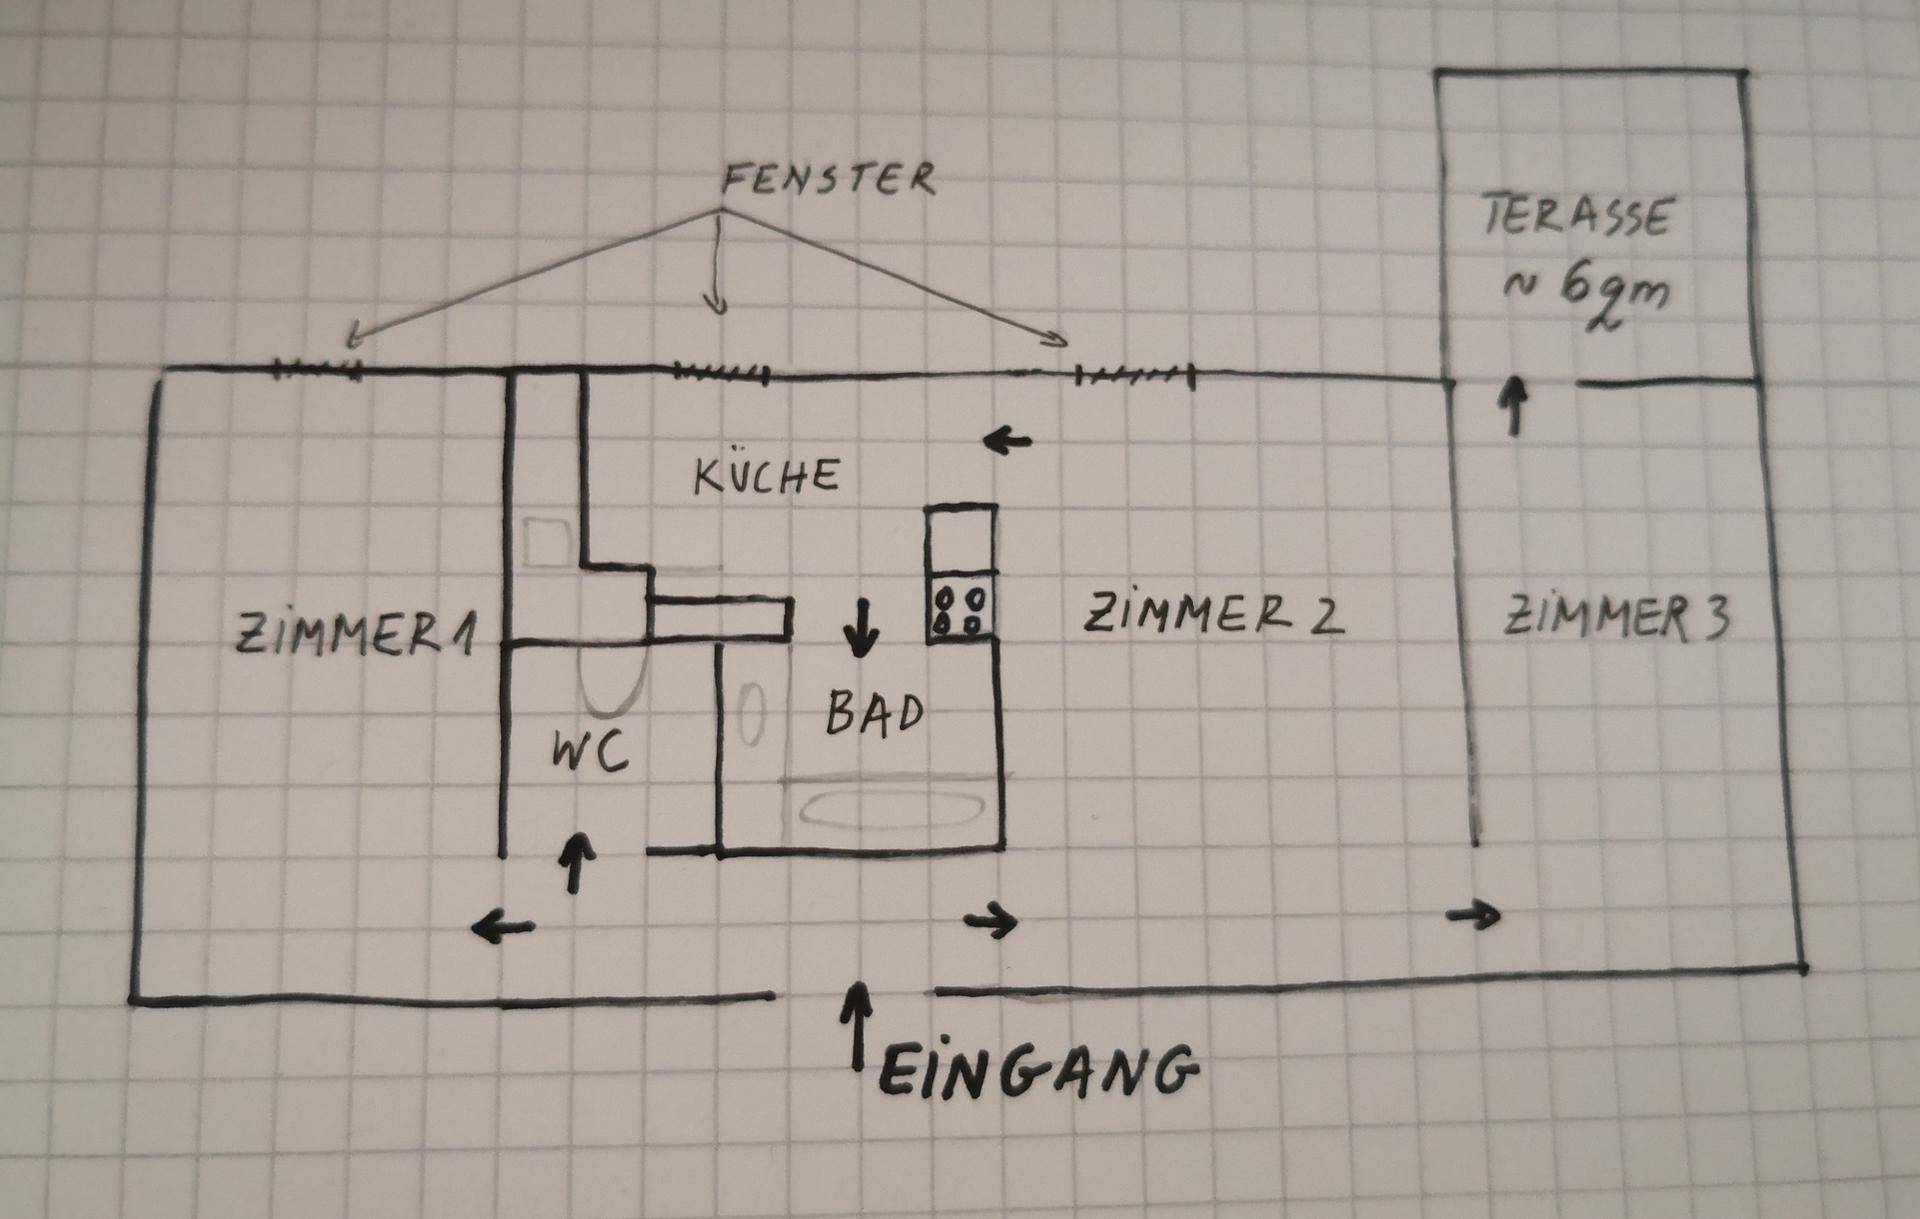 FENSTER
TERASSE
~ 6qm
KÜCHE
ZiMMER 1
ZiMMER 2
ZiMMER 3
BAD
WC
EiNGANG